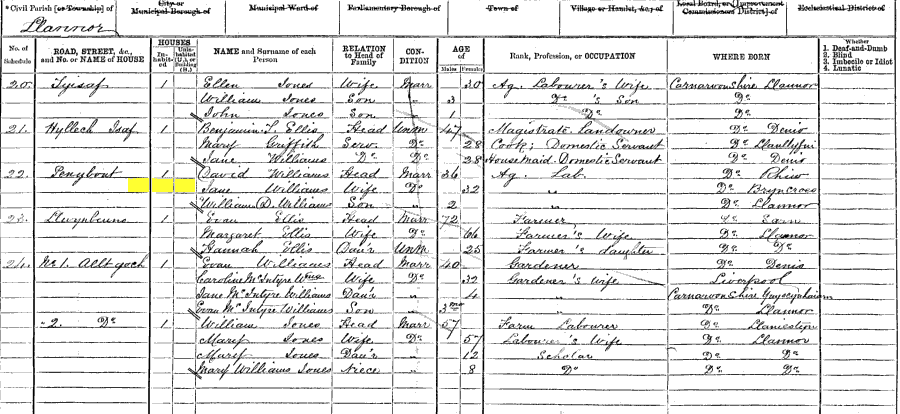 * Civil Parish [or Township] of City or Municipal Borough of Municipal Ward of Parliamentary Borough of Town of Village or Hamlet, &c., of Local Board, or [Improvement Commissioners District] of Ecclesiastical District of
Llannor
No. of Schedule ROAD, STREET, &c., and No. or NAME of HOUSE HOUSES In-habit-ed Unin-habited (U.), or Building (B.) NAME and Surname of each Person RELATION to Head of Family CON-DITION AGE of Males Females Rank, Profession, or OCCUPATION WHERE BORN Whether 1. Deaf-and-Dumb 2. Blind 3. Imbecile or Idiot 4. Lunatic
20 Tyisaf 1 Ellen Jones Wife Marr 30 Ag. Labourer's Wife Carnarvonshire Llannor
William Jones Son " 3 Do 's Son Do
John Jones Son " 1 Do Do
21 Hyllech Isaf 1 Benjamin T. Ellis Head Unm 47 Magistrate Landowner Do Denio
Mary Griffith Serv. Do 28 Cook; Domestic Servant Do
Jane Williams Do Do 28 House Maid Domestic Servant Do Denio
22 1 David Williams Head Marr 36 Ag. Lab. Do Rhiw
Jane Williams Wife Do 32 Do Bryncroes
William D. Williams Son 2 Do Llannor
23 1 Evan Ellis Head Marr 72 Farmer Do Sarn
Margaret Ellis Wife Do 66 Farmer's Wife Do Llannor
Hannah Ellis Daur Unm 25 Farmer's daughter Do Do
24 No 1. Allt goch 1 Evan Williams Head Marr 40 Gardener Do Denio
Caroline McIntyre Wms Wife Do 32 Gardener's Wife Liverpool
Jane McIntyre Williams Daur 4 " Carnarvonshire
Evan McIntyre Williams Son 3mo " Do Llannor
" 2. Do 1 William Jones Head Marr 57 Farm Labourer Do Llaniestin
Mary Jones Wife Do 57 Labourer's Wife Do Llannor
Mary Jones Daur " 12 Scholar Do Do
Mary Williams Jones Niece " 8 Do Do Do